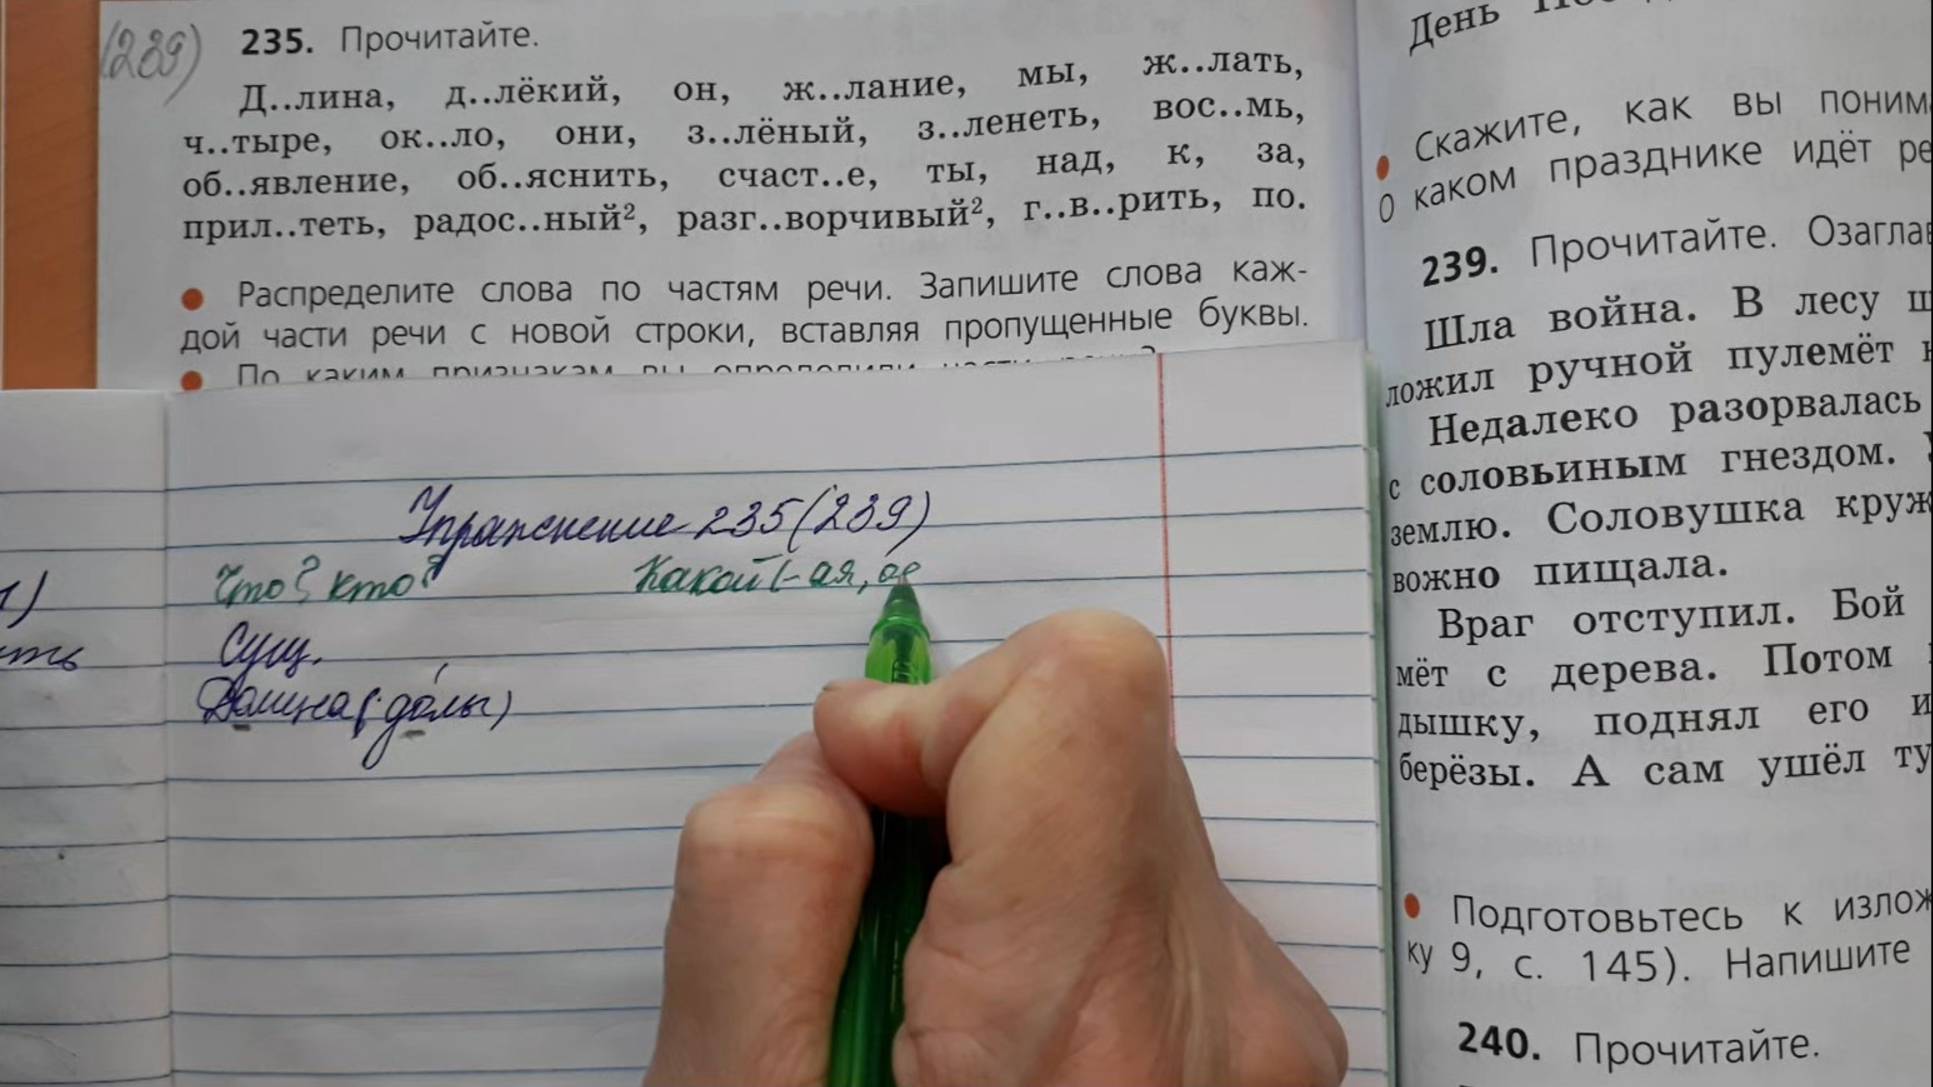 (239) 235. Прочитайте.
Д..лина, д..лёкий, он, ж..лание, мы, ж..лать,
ч..тыре, ок..ло, они, з..лёный, з..ленеть, вос..мь,
об..явление, об..яснить, счаст..е, ты, над, к, за,
прил..теть, радос..ный², разг..ворчивый², г..в..рить, по.
● Распределите слова по частям речи. Запишите слова каж-
дой части речи с новой строки, вставляя пропущенные буквы.
● По каким признакам вы определили части речи?
Упражнение 235 (239)
Что? кто? Какой (-ая, ое
Сущ.
Долина (до́лы)
1)
ть
День
● Скажите, как вы поним
о каком празднике идёт ре
239. Прочитайте. Озаглав
Шла война. В лесу ш
ложил ручной пулемёт н
Недалеко разорвалась
с соловьиным гнездом.
землю. Соловушка круж
вожно пищала.
Враг отступил. Бой
мёт с дерева. Потом
дышку, поднял его и
берёзы. А сам ушёл ту
● Подготовьтесь к излож
ку 9, с. 145). Напишите
240. Прочитайте.